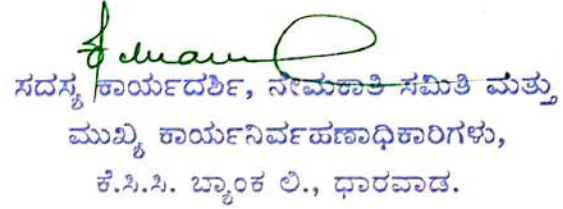 ಸದಸ್ಯ ಕಾರ್ಯದರ್ಶಿ, ನೇಮಕಾತಿ ಸಮಿತಿ ಮತ್ತು
ಮುಖ್ಯ ಕಾರ್ಯನಿರ್ವಹಣಾಧಿಕಾರಿಗಳು,
ಕೆ.ಸಿ.ಸಿ. ಬ್ಯಾಂಕ ಲಿ., ಧಾರವಾಡ.